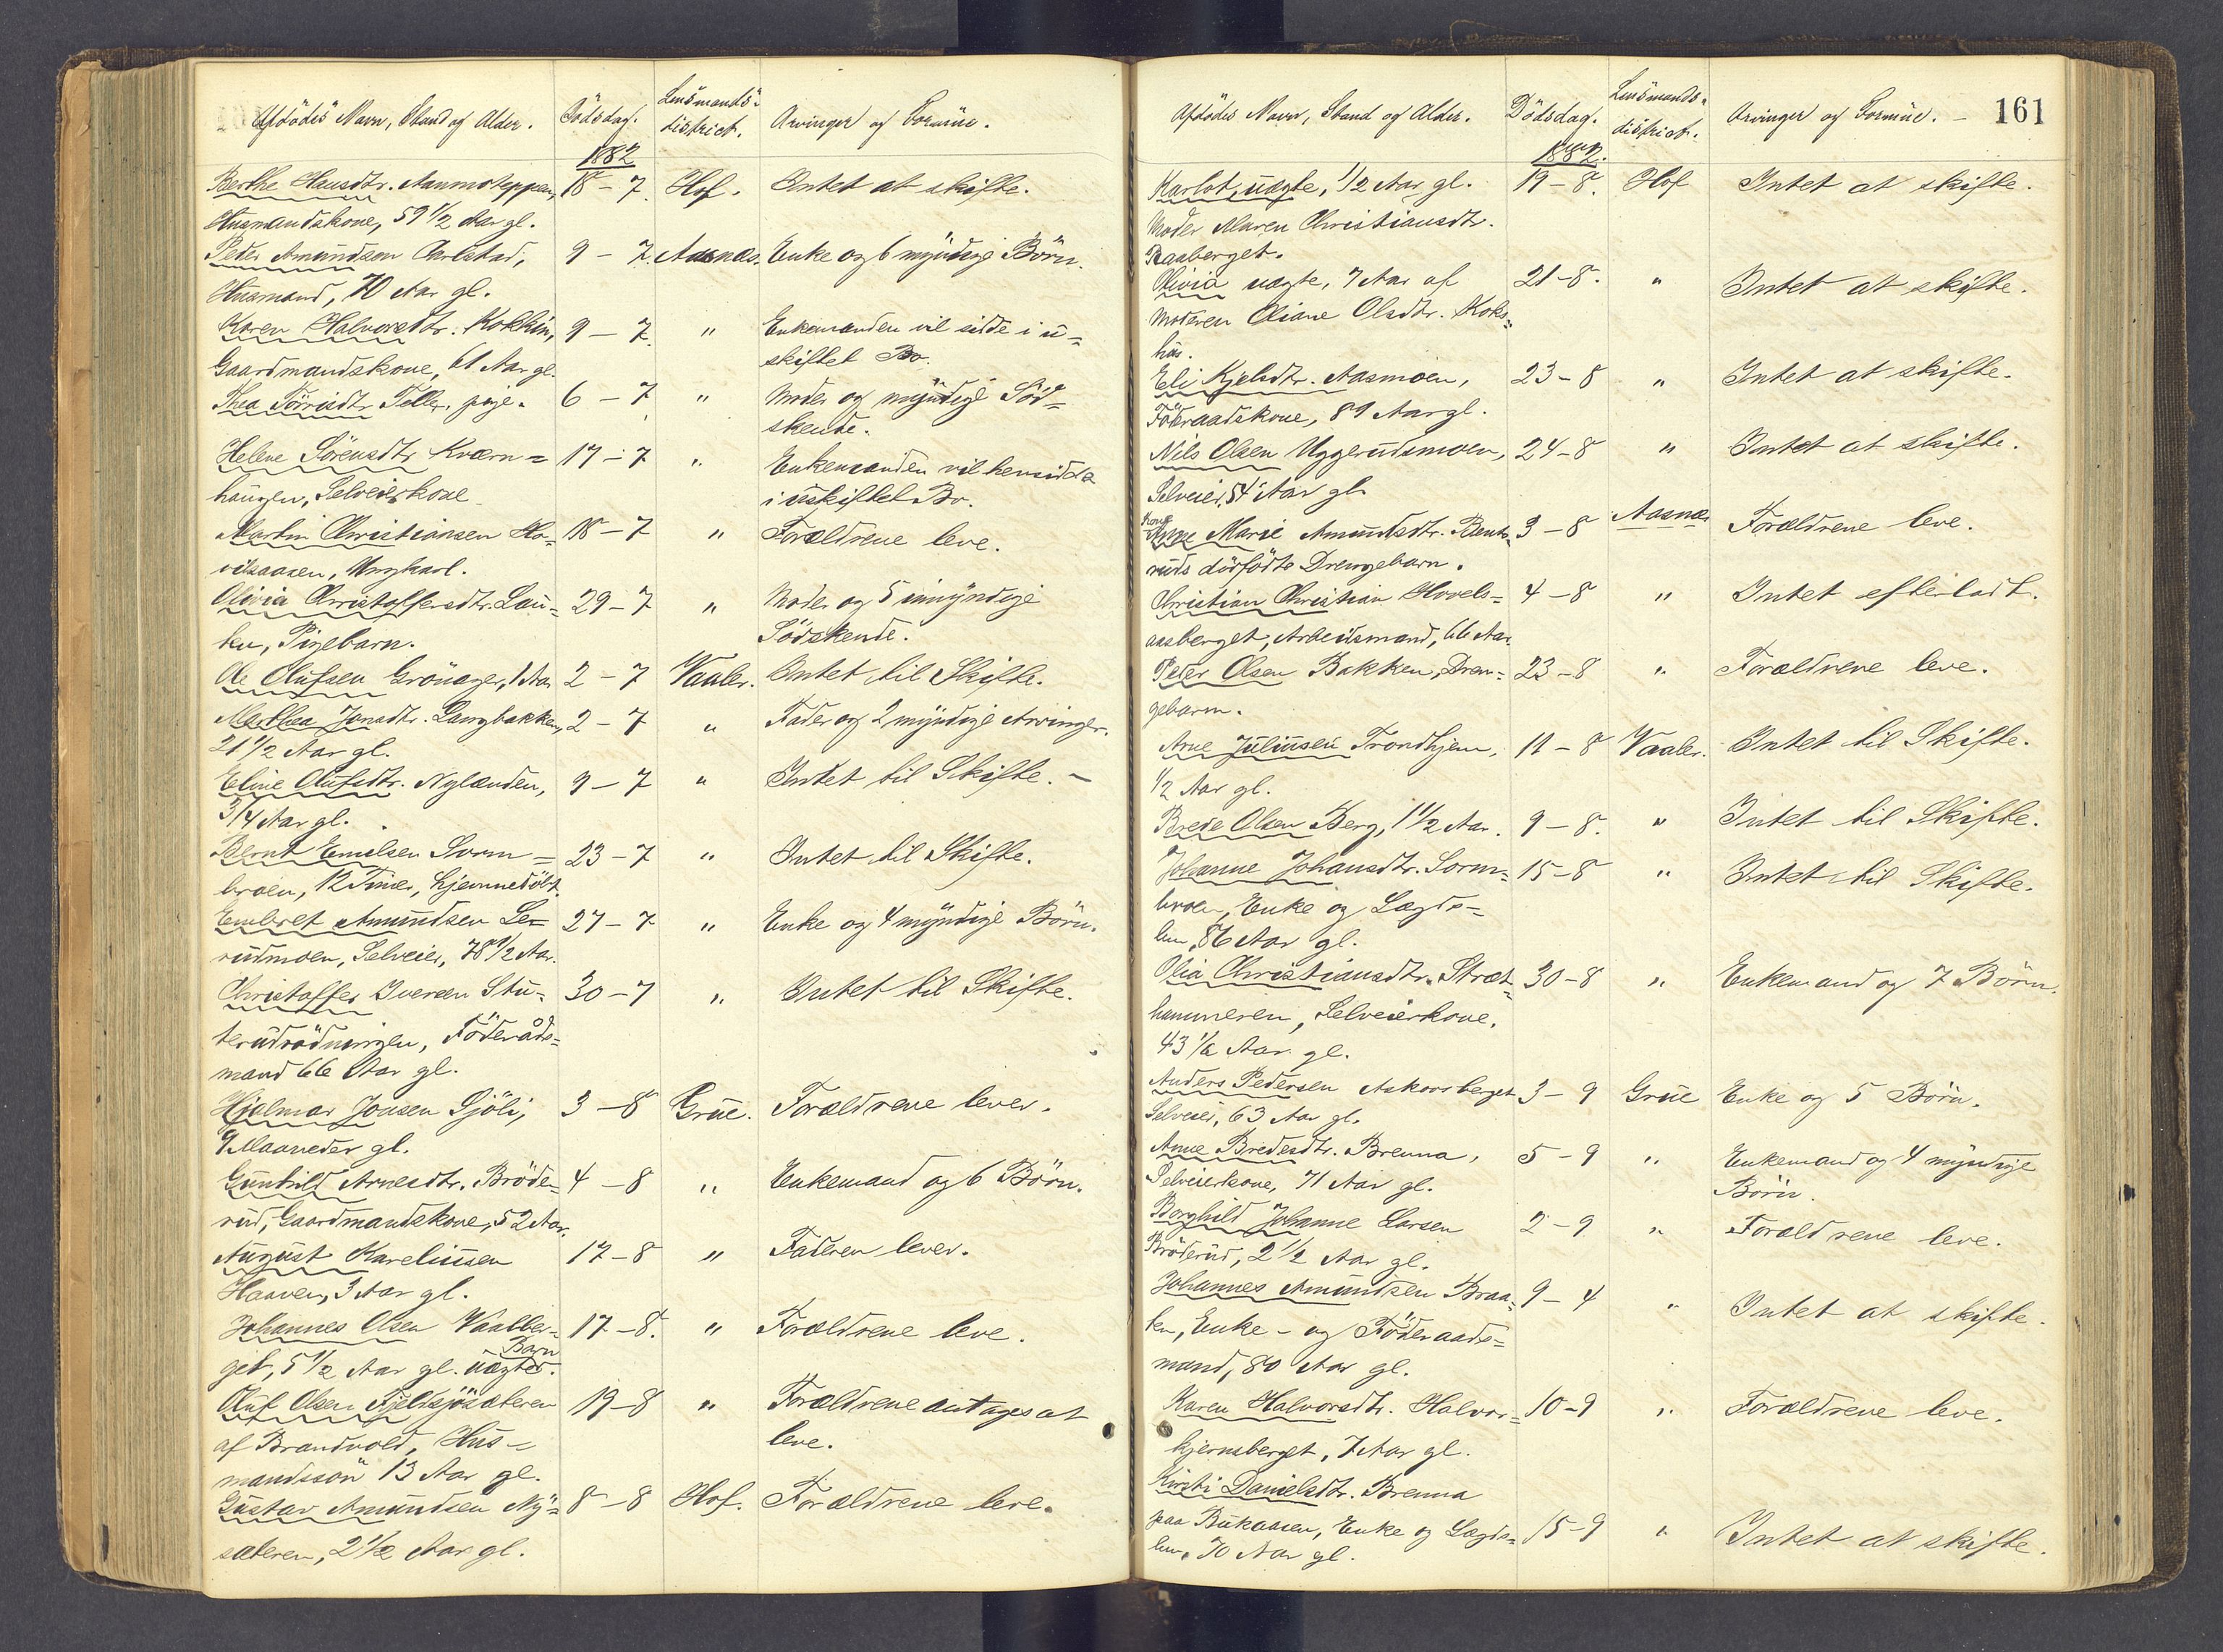 Afdødes Navn, Stand og Alder. Dødsdag. Lensmands- district. Arvinger og Formue.
1882
Berthe Hansdtr. Aanmoteppen, 18-7. Hof. Intet at skifte.
Husmandskone, 59 1/2 Aar gl.
Peder Amundsen Carlstad, 9-7. Aasnæs. Enke og 6 myndige Börn.
Husmand, 70 Aar gl.
Karen Halvorsdtr. Kokkin, 9-7. " Enkemanden vil sidde i u=
Gaardmandskone, 61 Aar gl. skiftet Bo.
Thea Törrisdtr. Teller, pige. 6-7 " Moder og myndige Söd=
skende.
Helene Sörensdtr. Kværn= 17-7 " Enkemanden vil hensidde
haugen, Selveierkone i uskiftet Bo.
Martin Christiansen Ho= 18-7 " Forældrene leve.
vilsaasen, Ungkarl.
Olivia Christoffersdtr. Lau= 29-7 " Moder og 5 umyndige
ten, Pigebarn. Södskende.
Ole Olufsen Grönager, 1 Aar 2-7 Vaaler. Intet til Skifte.
Marthea Jonsdtr. Langbakken, 2-7 " Fader og 2 myndige Arvinger.
21 1/2 Aar gl.
Eline Olufsdtr. Nylænden, 9-7 " Intet til Skifte. -
3/4 Aar gl.
Bernt Emilsen Sorm= 23-7 " Intet til Skifte.
broen, 12 Timer, hjemmedöbt.
Embret Amundsen Le= 27-7 " Enke og 4 myndige Börn.
rudmoen, Selveier, 78 1/2 Aar.
Christoffer Iversen Stu= 30-7 " Intet til Skifte.
terudrödningen, Föderåds=
mand 66 Aar gl.
Hjalmar Jonsen Sjöli, 3-8 Grue. Forældrene lever.
9 Maaneder gl.
Gunhild Arnesdtr. Bröde= 4-8 " Enkemand og 6 Börn.
rud, Gaardmandskone, 52 Aar.
August Kareliussen 17-8 " Faderen lever.
Haaven, 3 Aar gl.
Johannes Olsen Vaalber= 17-8. " Forældrene leve.
get, 5 1/2 Aar gl. uægte Barn.
Oluf Olsen Fjeldsjösæteren 19-8 " Forældrene antages at
af Brandvold, Hus= leve.
mandssön 13 Aar gl.
Gustav Amundsen Ny= 8-8 Hof. Forældrene leve.
sæteren, 2 1/2 Aar gl.
161
Afdödes Navn, Stand og Alder. Dödsdag. Lensmands- district. Arvinger og Formue. -
1882.
Karlot, uægte, 1/2 Aar gl. 19-8. Hof Intet at skifte.
Moder Maren Christiansdtr.
Raaberget.
Olivia uægte, 7 Aar af 21-8. " Intet at skifte.
Moderen Oliane Olsdtr. Koks=
hus.
Eli Kjelsdtr. Aasmoen, 23-8 " Intet at skifte.
Föderaadskone, 89 Aar gl.
Nils Olsen Uggerudsmoen, 24-8 " Intet at skifte.
Selveier, 54 Aar gl.
Kone
Anne Marie Amundsdtr. Bents= 3-8 Aasnæs Forældrene leve.
ruds dödfödte Drengebarn.
Christian Christian Hovels= 4-8 " Intet efterladt.
aasberget, Arbeidsmand, 66 Aar.
Peder Olsen Bakken, Dren= 23-8 " Forældrene leve.
gebarn.
Arne Juliussen Trondhjem, 11-8 Vaaler. Intet til Skifte.
1/2 Aar gl.
Brede Olsen Berg, 1 1/2 Aar. 9-8. " Intet til Skifte.
Johanne Johansdtr. Sorm= 15-8 " Intet til Skifte.
broen, Enke og Lægds=
lem, 86 Aar gl.
Olia Christiansdtr. Stræt= 30-8 " Enkemand og 7 Börn.
hammeren, Selveierkone,
43 1/2 Aar gl.
Anders Pedersen Askorsberget 3-9 Grue Enke og 5 Börn.
Selveier, 63 Aar gl.
Anne Bredesdtr. Brenna, 5-9 " Enkemand og 4 myndige
Selveierkone, 71 Aar gl. Börn.
Borghild Johanne Larsen 2-9 " Forældrene leve.
Bröderud, 2 1/2 Aar gl.
Johannes Amundsen Braa= 9-4 " Intet at skifte.
ten, Enke- og Föderaads=
mand, 80 Aar gl.
Karen Halvorsdtr. Halvor= 10-9 " Forældrene leve.
kjernsberget, 7 Aar gl.
Kirsti Danielsdtr. Brenna
paa Bukaasen, Enke og Lægds= 15-9 " Intet at skifte.
lem, 70 Aar gl.